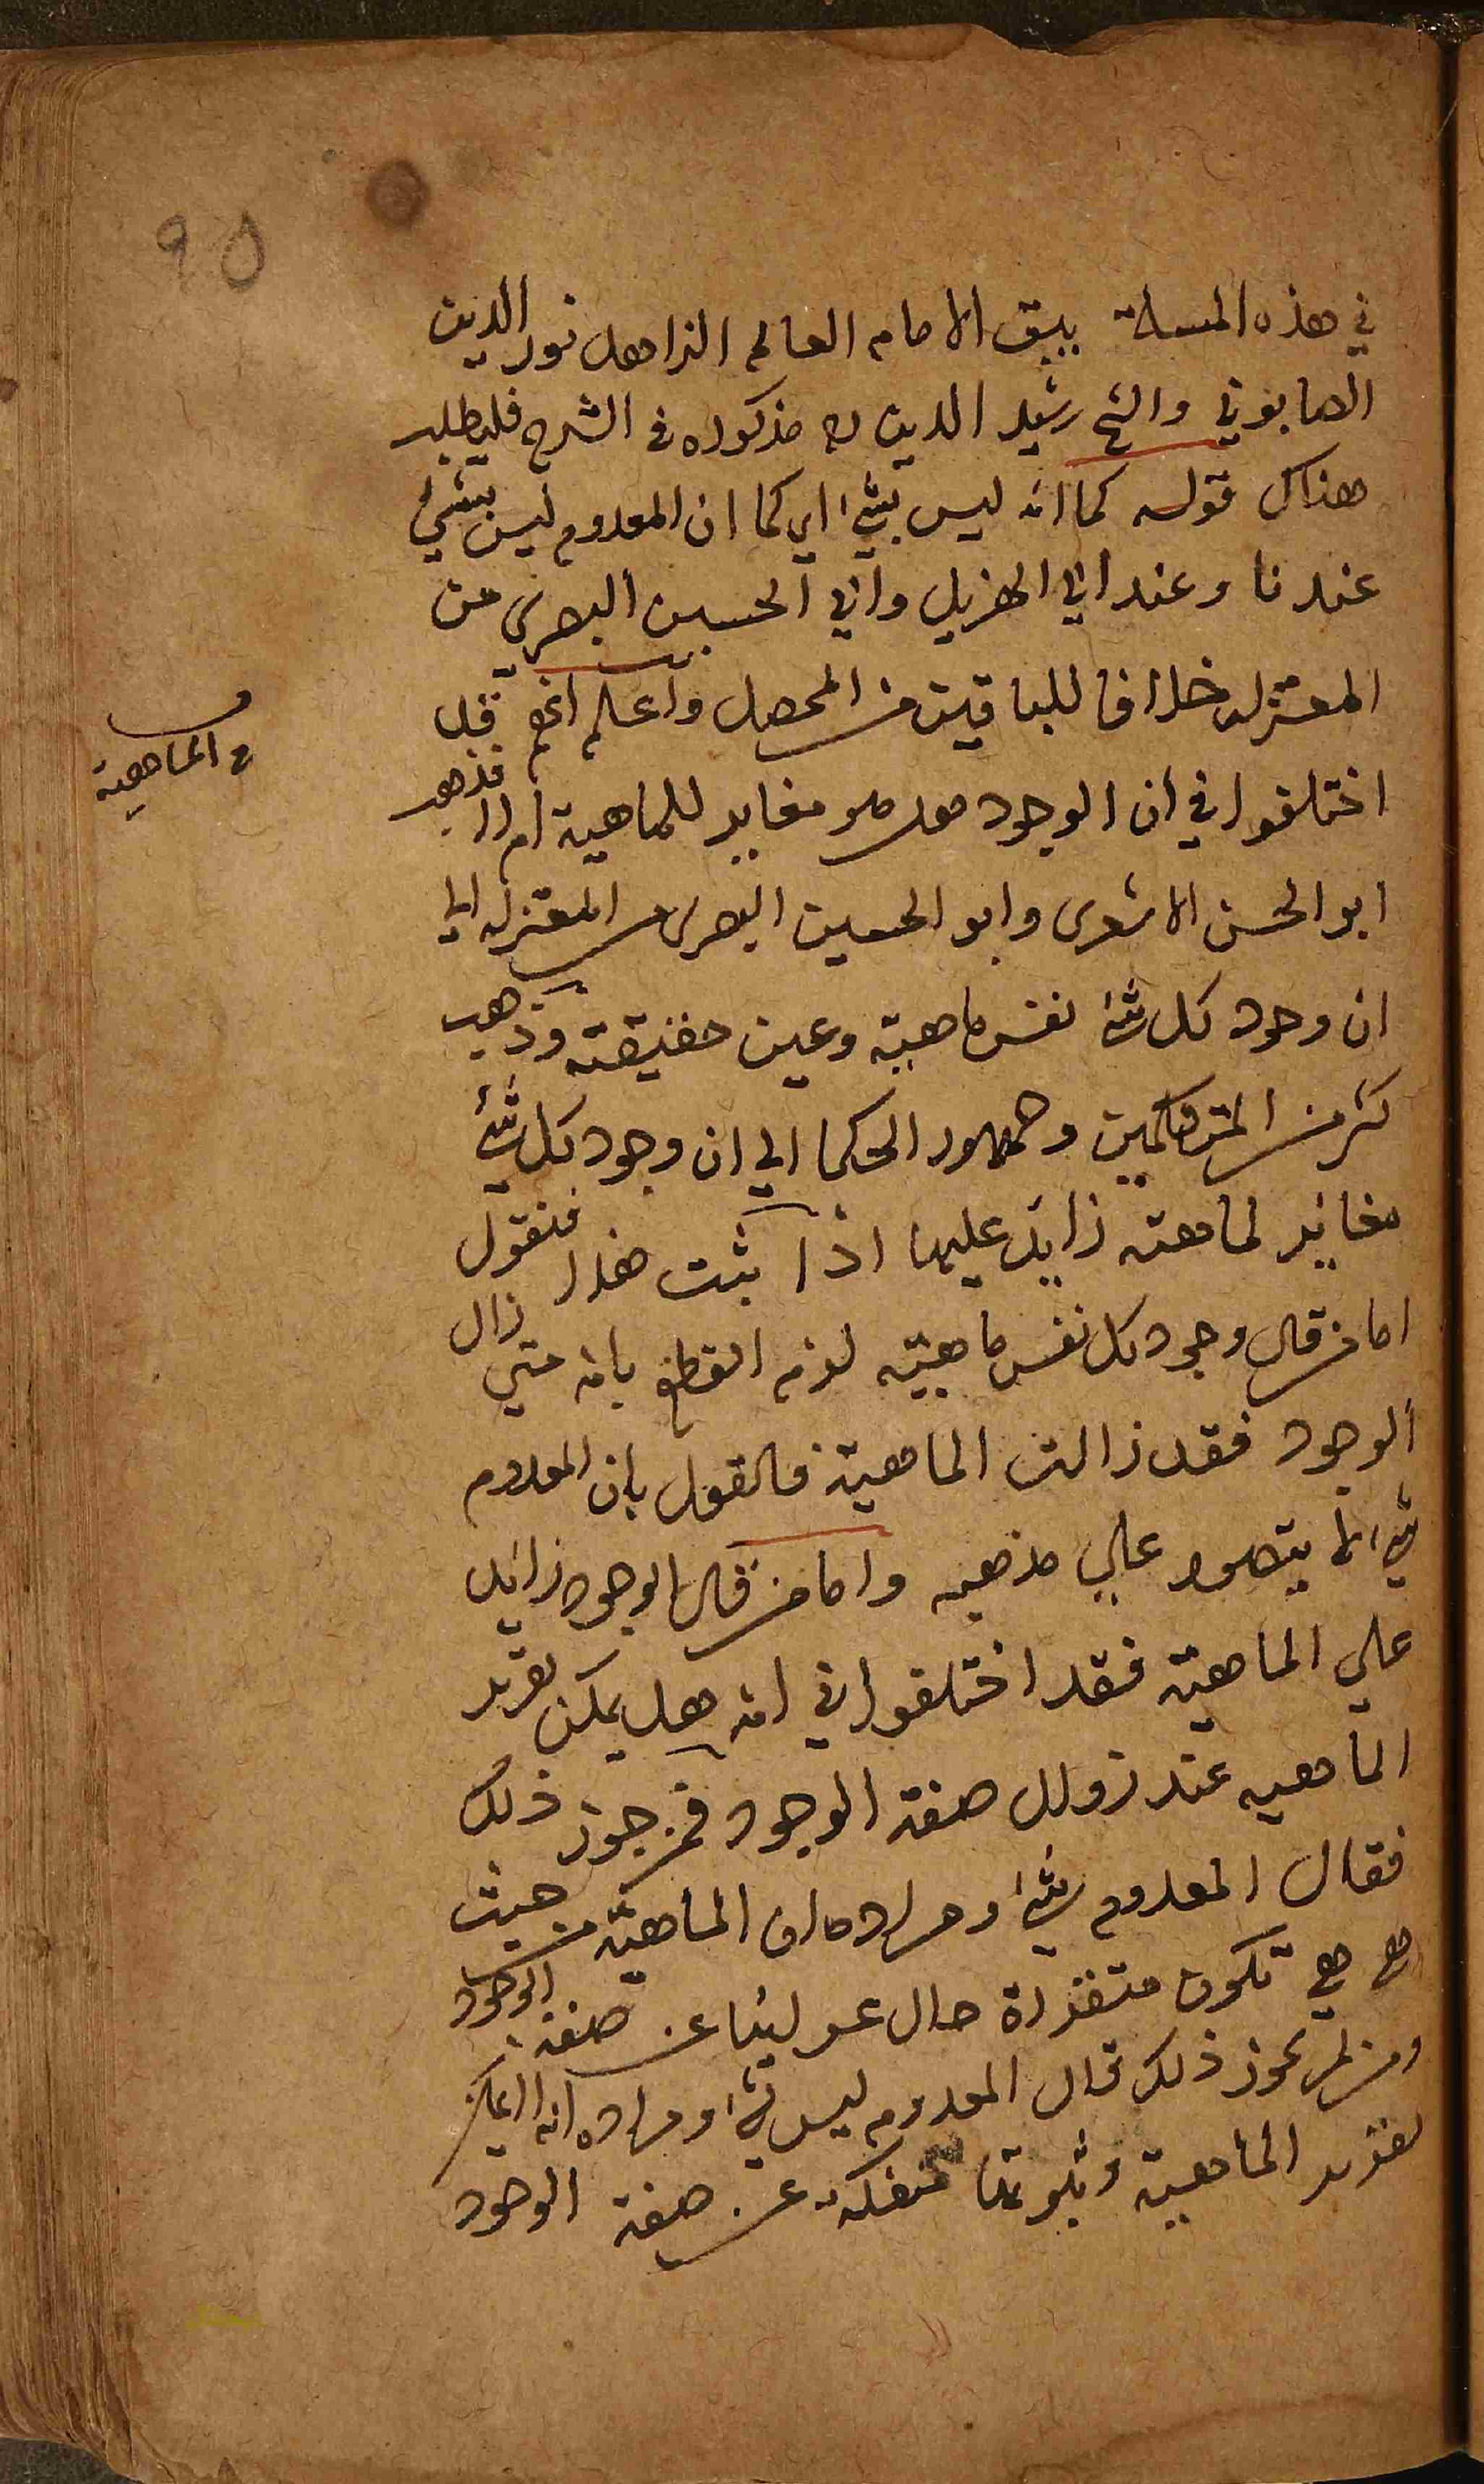 ٩٥
في هذه المسلة بين الامام العالم الزاهد نور الدين
الصابوني والشيخ رشيد الدين ره مذكوره في الشرح فليطلب
هناك قوله كما انه ليس بشيء اي كما ان المعدوم ليس بشيء
عندنا وعند ابي الهزيل وابي الحسين البصري من
المعتزله خلافا للباقين من المحصل واعلم انهم قد
اختلفوا في ان الوجود هل هو مغاير للماهية ام لا فذهب
ابو الحسن الاشعري وابو الحسين البصري من المعتزله الي
ان وجود كل شيء نفس ماهيته وعين حقيقته وذهب
كثر من المتكلمين وجمهور الحكما الي ان وجود كل شيء
مغاير لماهيته زايد عليها اذا ثبت هذا فنقول
اما من قال وجود كل نفس ماهيته لزم القطع بانه متي زال
الوجود فقد زالت الماهية فالقول بان المعدوم
شيء لا يتصور علي مذهبه واما من قال الوجود زايد
علي الماهية فقد اختلفوا في انه هل يمكن تقرير
الماهيه عند زوال صفة الوجود فمن جوز ذلك
فقال المعدوم شيء ومراده ان الماهية من حيث
هي هي تكون متقررة حال عرائها عن صفة الوجود
ومن لم يجوز ذلك قال المعدوم ليس بشيء ومراده انه لا يمكن
تقرير الماهية وثبوتها منفكة عن صفة الوجود
في الماهية